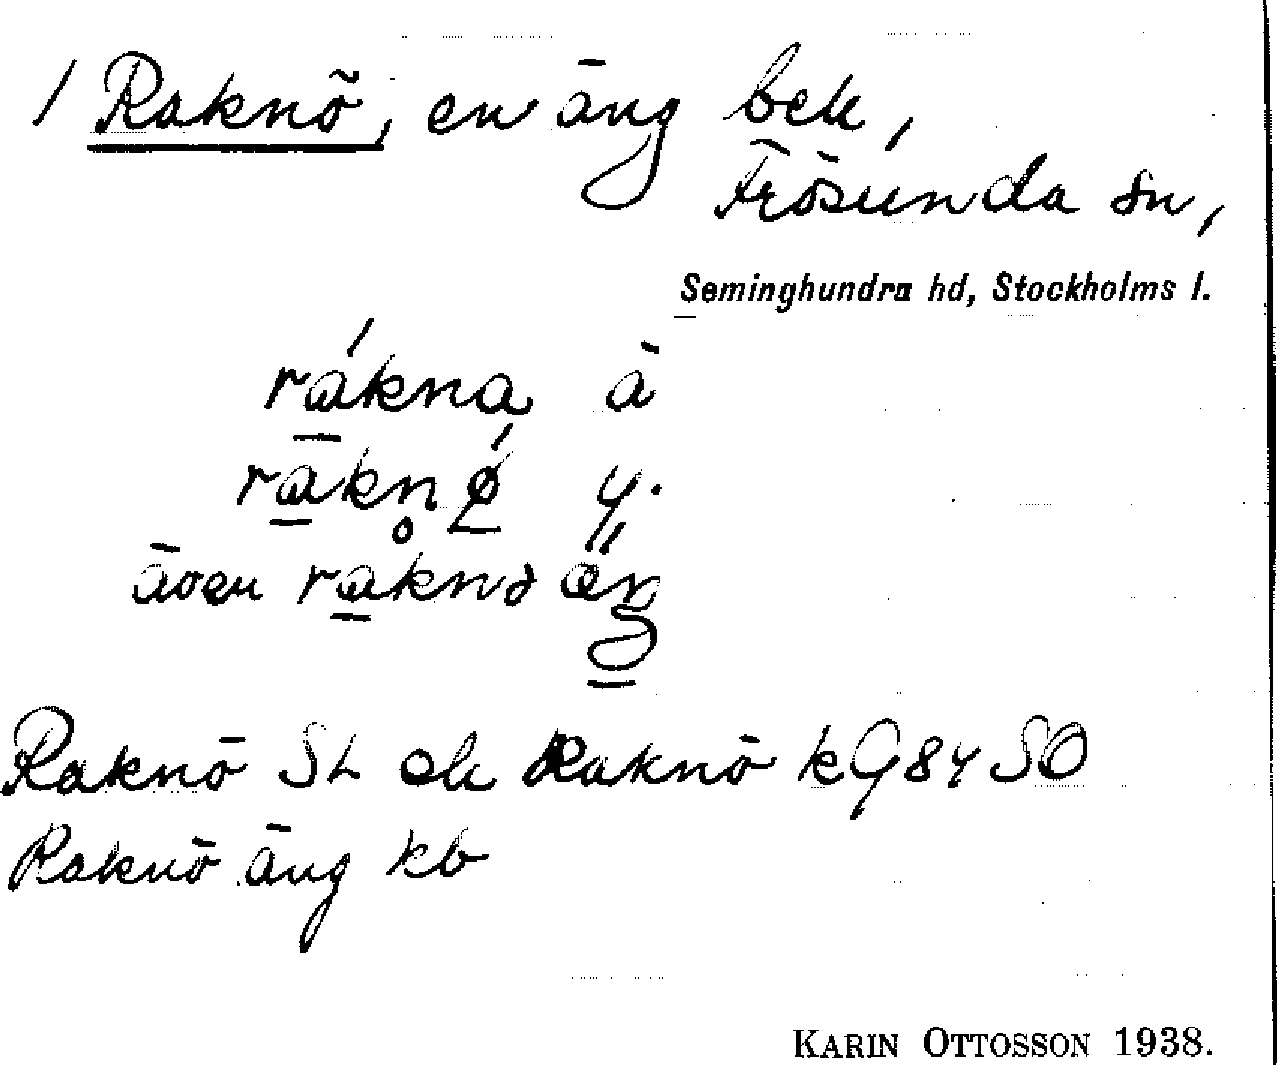 / Raknö, en äng bek,
Frösunda sn,
Seminghundra hd, Stockholms l.
rákna ä
rakn y.
även rakna äng
Raknö St ek Raknö kG84 SO
Raknö äng kb
KARIN OTTOSSON 1938.